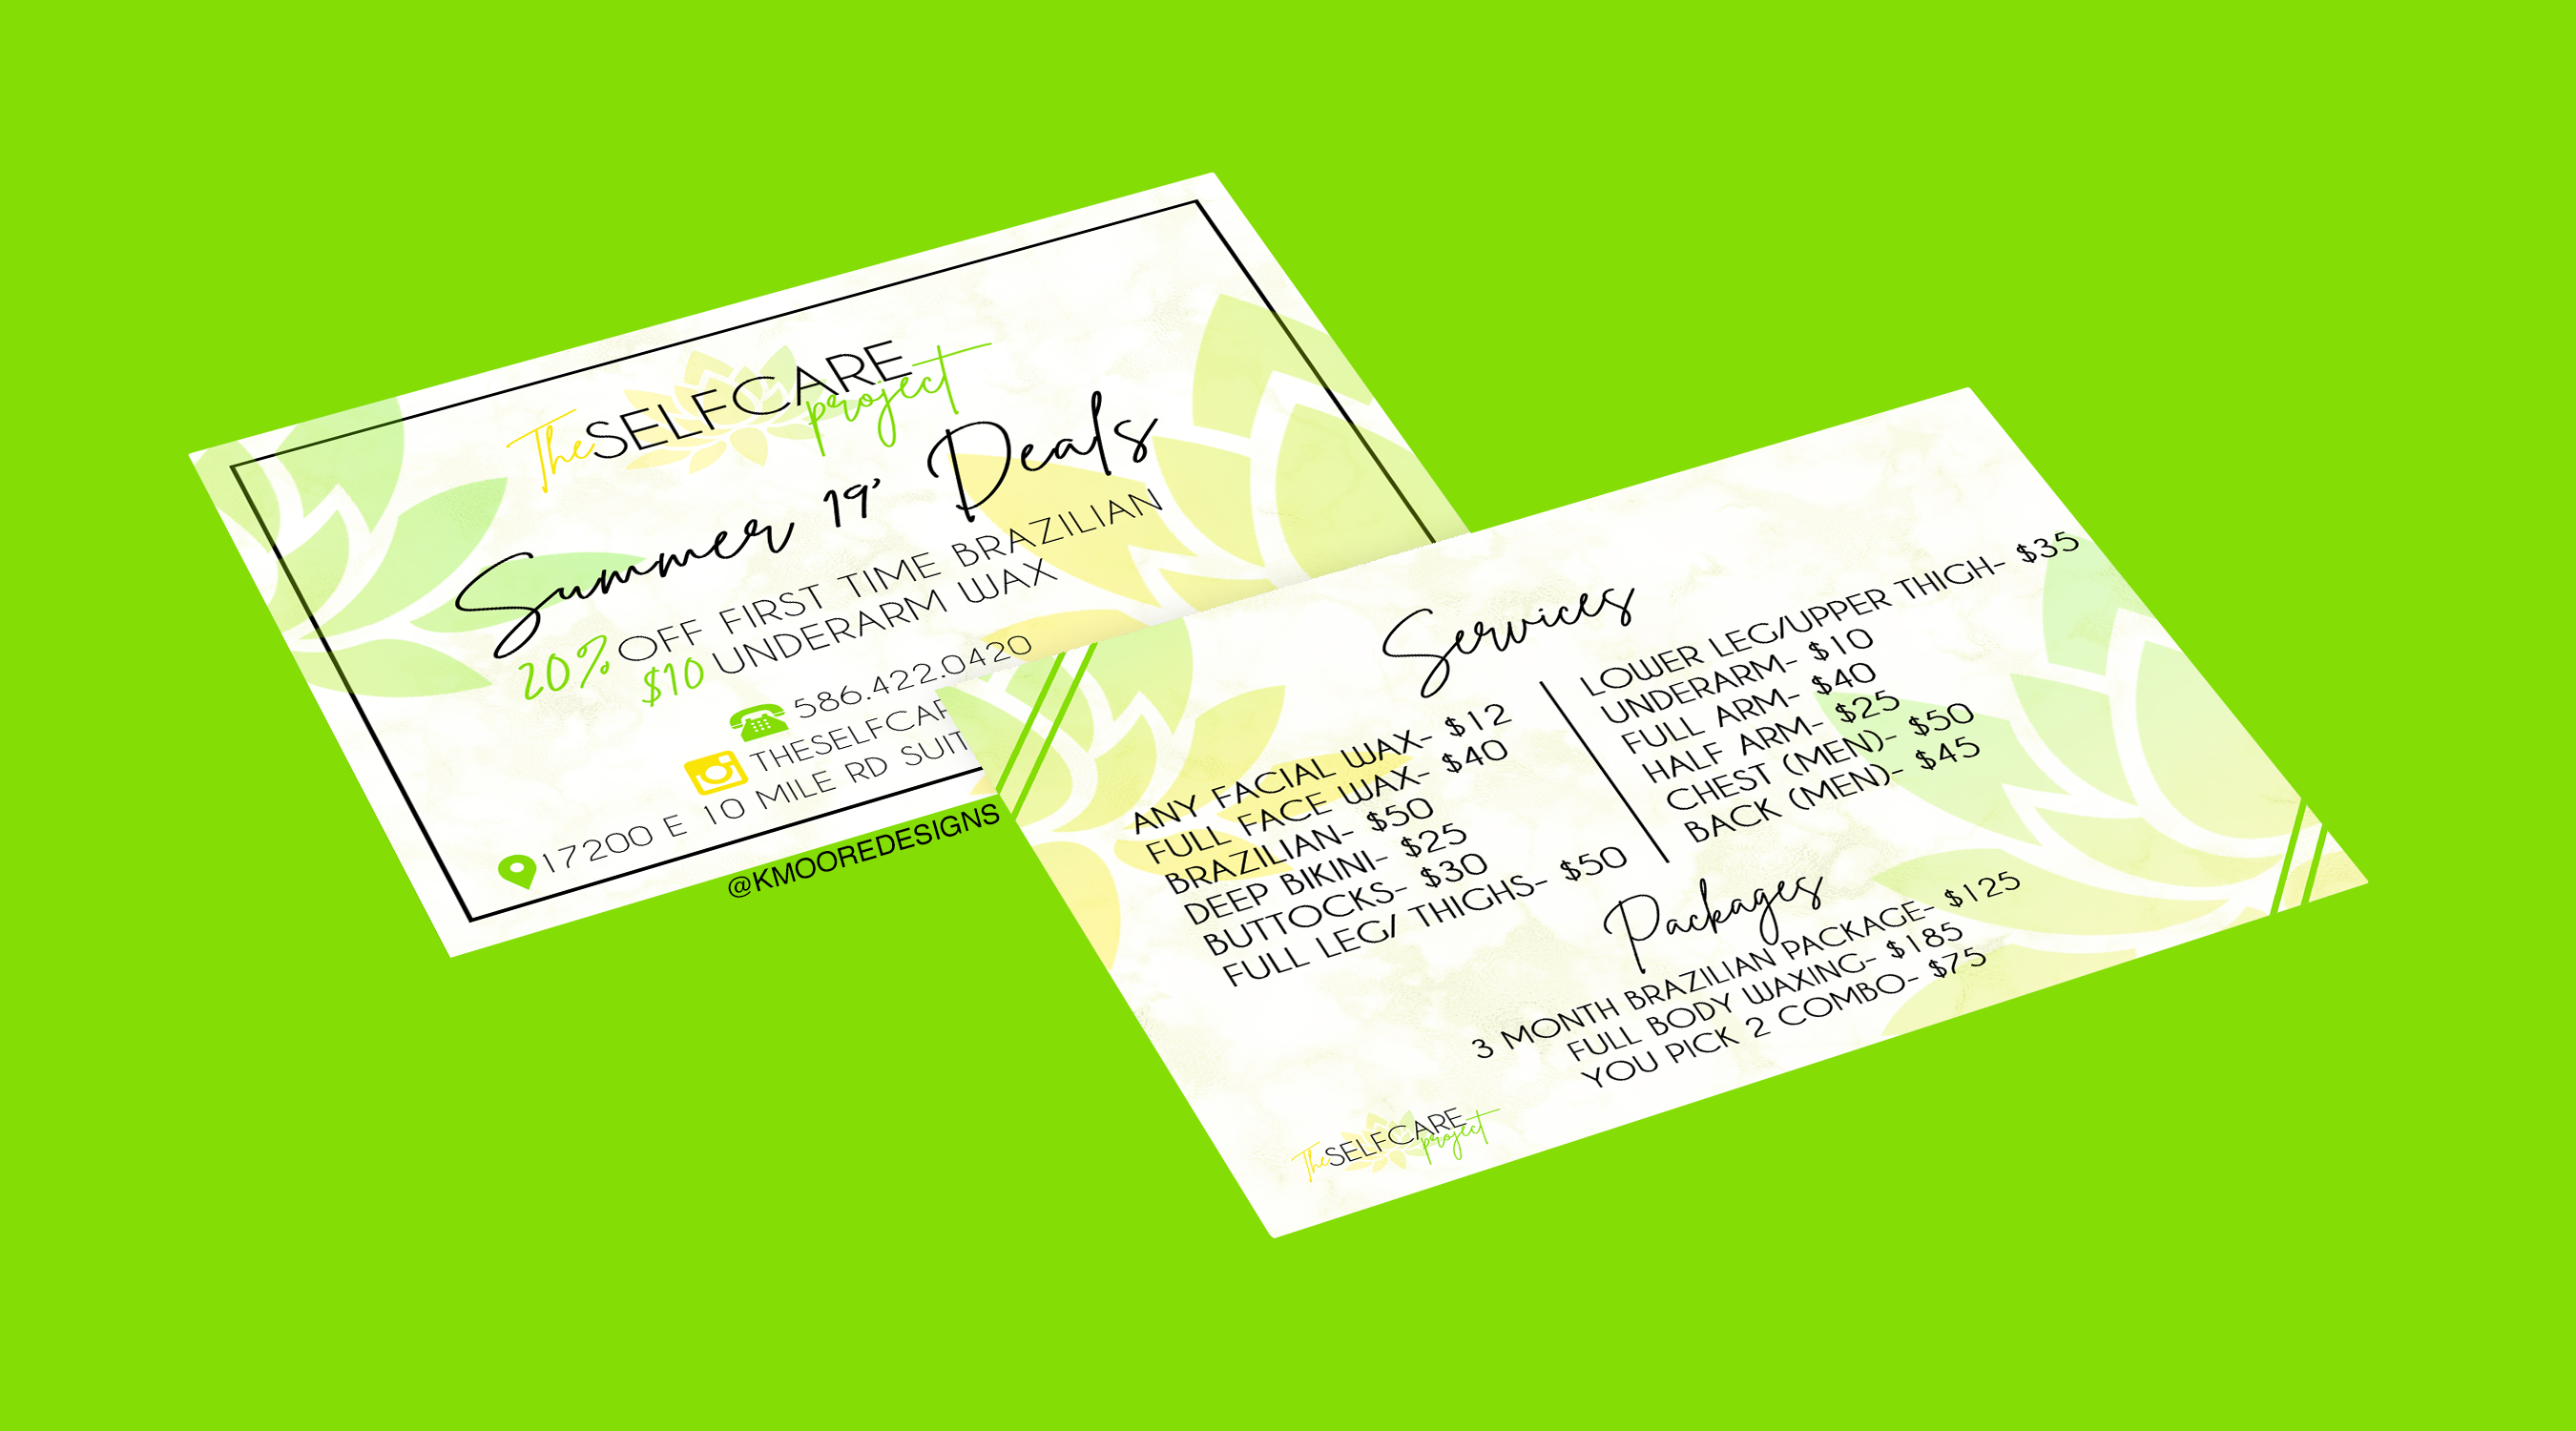 TheSELFCARE project
Summer 19' Deals
20% OFF FIRST TIME BRAZILIAN
$10 UNDERARM WAX
586.422.0420
17200 E 10 MILE RD
@KMOOREDESIGNS
Services
ANY FACIAL WAX- $12
FULL FACE WAX- $40
BRAZILIAN- $50
DEEP BIKINI- $25
BUTTOCKS- $30
FULL LEG/ THIGHS- $50
LOWER LEG/UPPER THIGH- $35
UNDERARM- $10
FULL ARM- $40
HALF ARM- $25
CHEST (MEN)- $50
BACK (MEN)- $45
Packages
3 MONTH BRAZILIAN PACKAGE- $125
FULL BODY WAXING- $185
YOU PICK 2 COMBO- $75
TheSELFCARE project